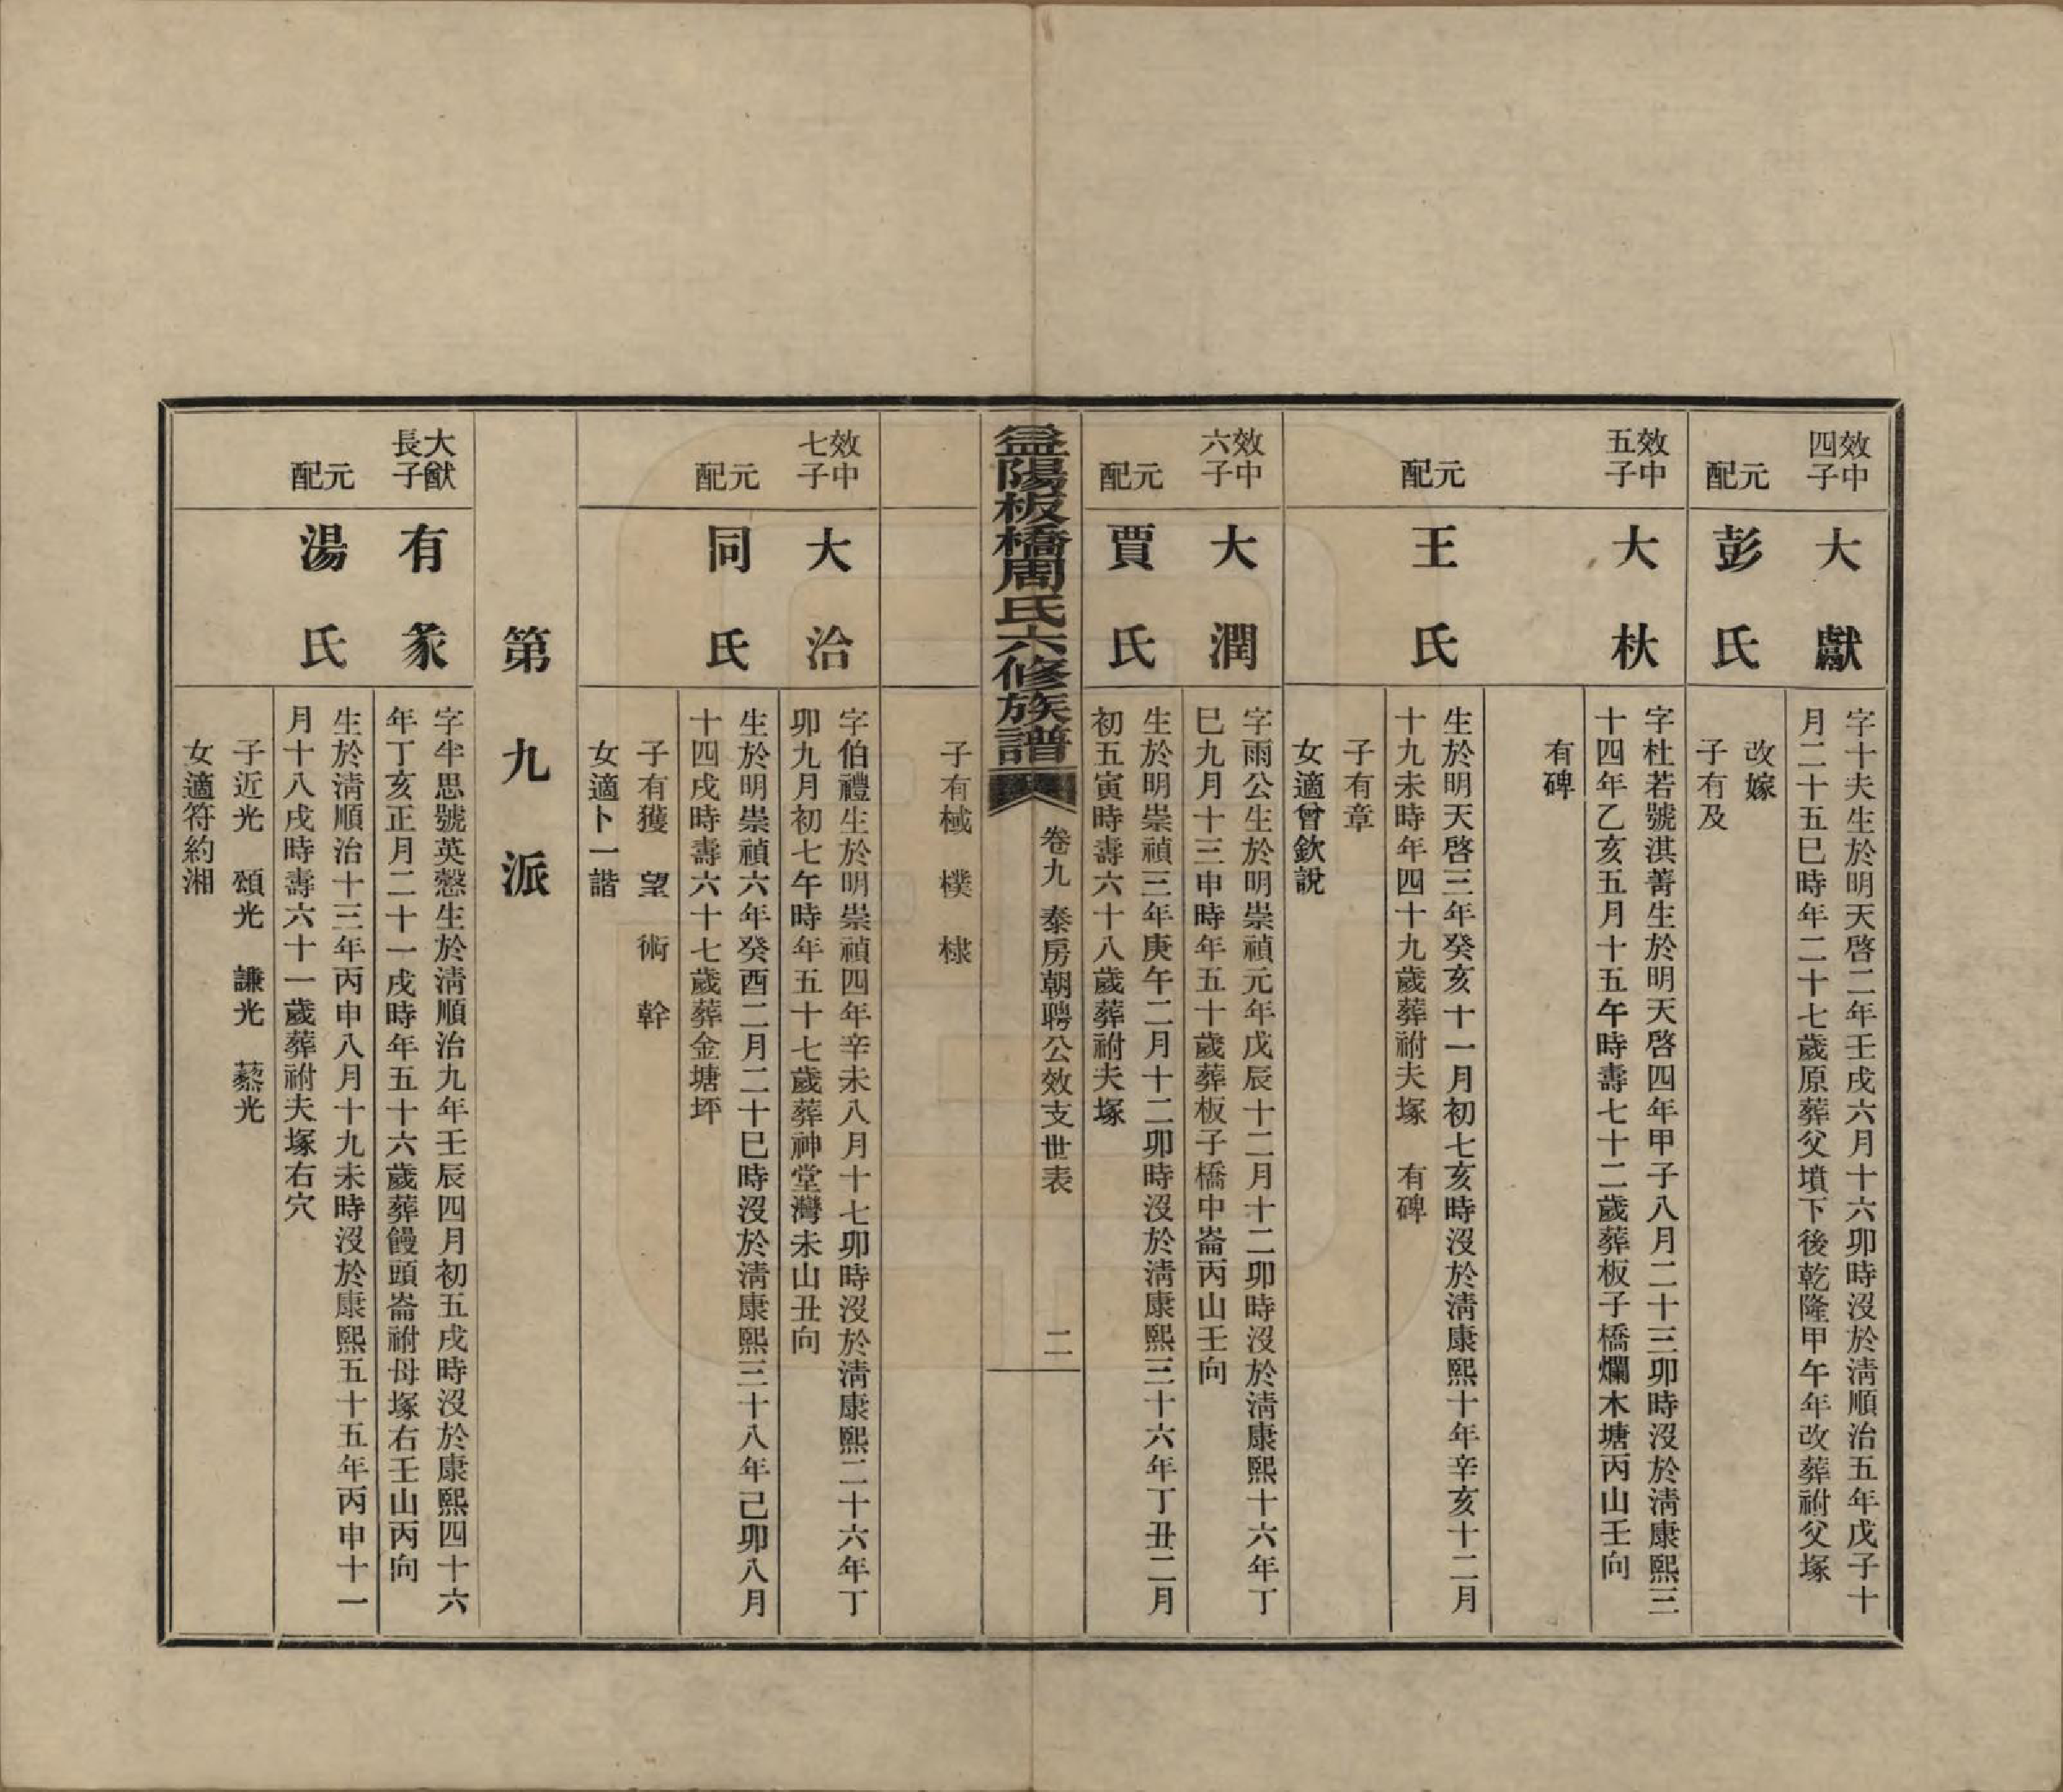 效中四子
大獻
字十夫生於明天啓二年壬戌六月十六卯時沒於淸順治五年戊子十
月二十五巳時年二十七歲原葬父墳下後乾隆甲午年改葬祔父塚
元配
彭氏
改嫁
子有及
效中五子
大杕
字杜若號淇菁生於明天啓四年甲子八月二十三卯時沒於淸康熙三
十四年乙亥五月十五午時壽七十二歲葬板子橋爛木塘丙山壬向
有碑
元配
王氏
生於明天啓三年癸亥十一月初七亥時沒於淸康熙十年辛亥十二月
十九未時年四十九歲葬祔夫塚　有碑
子有章
女適曾欽說
效中六子
大潤
字雨公生於明崇禎元年戊辰十二月十二卯時沒於淸康熙十六年丁
巳九月十三申時年五十歲葬板子橋中崙丙山壬向
元配
賈氏
生於明崇禎三年庚午二月十二卯時沒於淸康熙三十六年丁丑二月
初五寅時壽六十八歲葬祔夫塚
益陽板橋周氏六修族譜
卷九　泰房朝聘公效支世表
二
子有棫　樸　棣
效中七子
大洽
字伯禮生於明崇禎四年辛未八月十七卯時沒於淸康熙二十六年丁
卯九月初七午時年五十七歲葬神堂灣未山丑向
元配
同氏
生於明崇禎六年癸酉二月二十巳時沒於淸康熙三十八年己卯八月
十四戌時壽六十七歲葬金塘坪
子有獲　望　術　幹
女適卜一諧
第九派
大猷長子
有彖
字半思號英愨生於淸順治九年壬辰四月初五戌時沒於康熙四十六
年丁亥正月二十一戌時年五十六歲葬饅頭崙祔母塚右壬山丙向
元配
湯氏
生於淸順治十三年丙申八月十九未時沒於康熙五十五年丙申十一
月十八戌時壽六十一歲葬祔夫塚右穴
子近光　頌光　謙光　藜光
女適符約湘